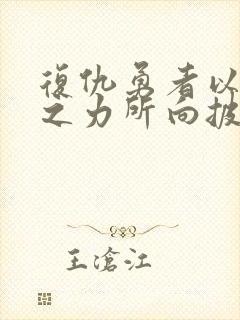 復仇勇者以
之力所向披
王滄江